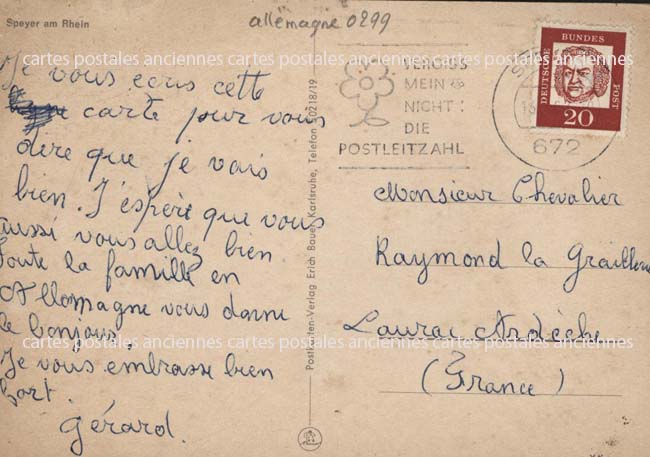 allemagne 0299
Speyer am Rhein
Je vous ecris cette
carte pour vous
dire que je vais
bien. J'espère que vous
aussi vous allez bien
Toute la famille en
Allemagne vous donne
le bonjour.
Je vous embrasse bien
fort.
Gérard.
Postkarten-Verlag Erich Bauer, Karlsruhe, Telefon 20218/19
VERGISS
MEIN
NICHT:
DIE
POSTLEITZAHL
672
DEUTSCHE BUNDESPOST
20
Monsieur Chevalier
Raymond la
Laurac Ardèche
(France)
cartes postales anciennes cartes postales anciennes cartes postales anciennes
cartes postales anciennes cartes postales anciennes cartes postales anciennes
cartes postales anciennes cartes postales anciennes cartes postales anciennes